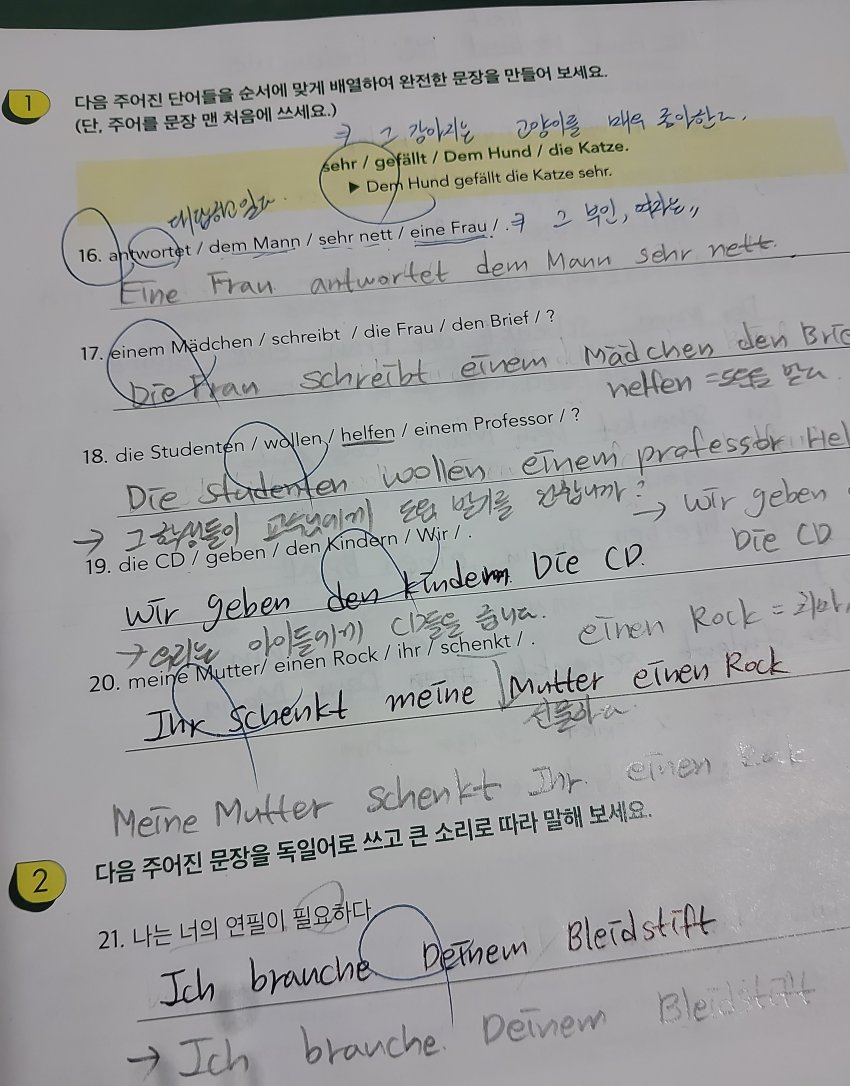 1
다음 주어진 단어들을 순서에 맞게 배열하여 완전한 문장을 만들어 보세요.
(단, 주어를 문장 맨 처음에 쓰세요.)
그 강아지는 고양이를 매우 좋아한다.
sehr / gefällt / Dem Hund / die Katze.
▶ Dem Hund gefällt die Katze sehr.
대답하고있다.
그 부인, 여자는
16. antwortet / dem Mann / sehr nett / eine Frau / .
Eine Frau antwortet dem Mann sehr nett.
17. einem Mädchen / schreibt / die Frau / den Brief / ?
Die Frau schreibt einem Mädchen den Brie
helfen = 도움 받다.
18. die Studenten / wollen / helfen / einem Professor / ?
Die studenten wollen einem professor Hel
→ 그학생들이 교수님에게 도움 받기를 원합니까?
→ wir geben
19. die CD / geben / den Kindern / Wir / .
Die CD
wir geben den kindern. Die CD.
→ 우리는 아이들에게 CD들을 줍니다.
einen Rock = 치마
20. meine Mutter/ einen Rock / ihr / schenkt / .
Ihr schenkt meine Mutter einen Rock
선물하다
Meine Mutter schenkt Ihr. einen Rock
2
다음 주어진 문장을 독일어로 쓰고 큰 소리로 따라 말해 보세요.
21. 나는 너의 연필이 필요하다
Ich brauche Deinem Bleidstift
→ Ich brauche. Deinem Bleidstift